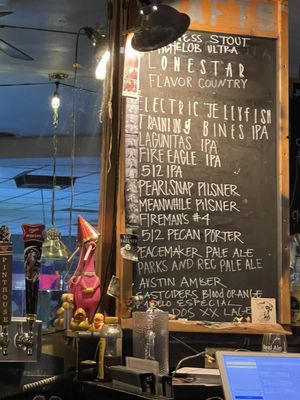 DRAFTS
NESS STOUT
MICHELOB ULTRA
LONESTAR
FLAVOR COUNTRY
ELECTRIC JELLYFISH
TRAINING BINES IPA
LAGUNITAS IPA
FIRE EAGLE IPA
512 IPA
PEARLSNAP PILSNER
MEANWHILE PILSNER
FIREMAN'S #4
512 PECAN PORTER
PEACEMAKER PALE ALE
PARKS AND REC PALE ALE
AUSTIN AMBER
EASTCIDERS Blood ORANGE
ESPECIAL
DOS XX LAGER
PINTHOUSE